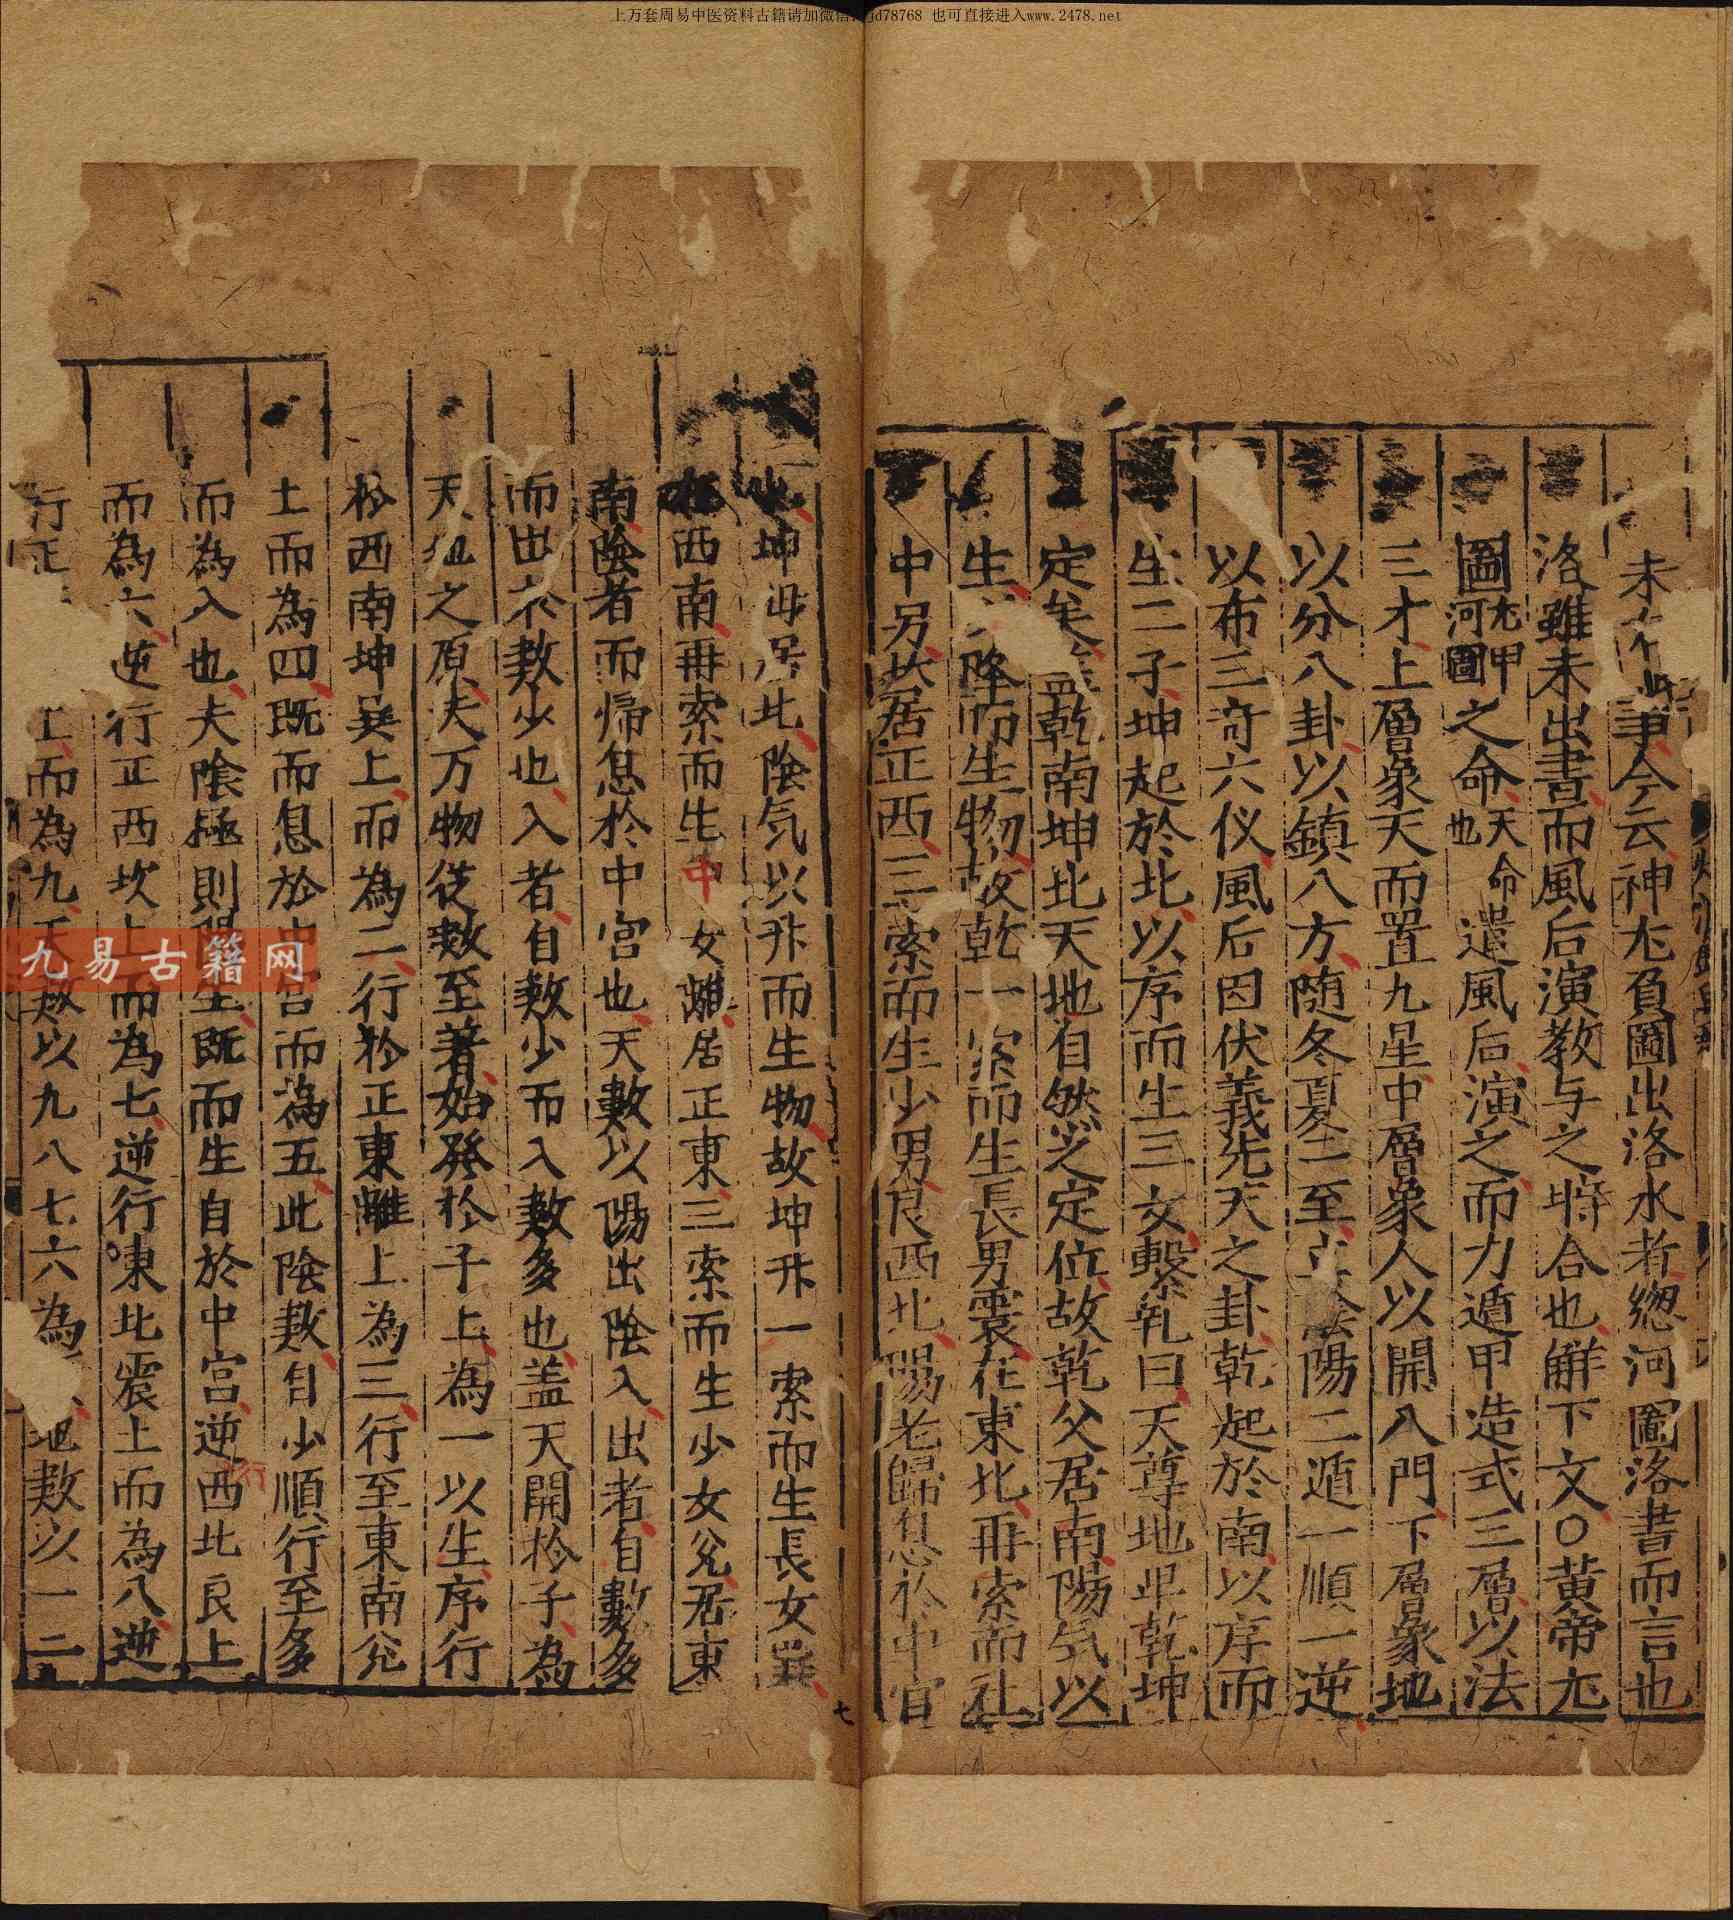 上万套周易中医资料古籍请加微信:djd78768 也可直接进入www.2478.net
未有此事今云神尢負圖出洛水者緫河圖洛書而言也
洛雖未出書而風后演教与之時合也觧下文〇黄帝尢
圖尢甲河圖之命天命也遣風后演之而力遁甲造式三層以法
三才上層象天而置九星中層象人以開八門下層象地
以分八卦以鎮八方随冬夏二至立陰陽二遁一順一逆
以布三竒六仪風后因伏義先天之卦乾起於南以序而
生二子坤起於北以序而生三女繫乹曰天尊地卑乾坤
定矣盖乾南坤北天地自然之定位故乾父居南陽気以
生降而生物故乾一索而生長男震在東北再索而社
中男坎居正西三索而生少男艮西北陽老歸息於中宫
坤母居北陰気以升而生物故坤升一索而生長女巽
在西南再索而生中女離居正東三索而生少女兊居東
南陰者而帰息於中宮也天數以陽出陰入出者自數多
而出於數少也入者自數少而入數多也盖天開於子為
天地之原夫万物從數至著始發於子上為一以生序行
於西南坤巽上而為二行於正東離上為三行至東南兊
土而為四既而息於中宮而為五此陰數自少順行至多
而為入也夫陰極則陽生既而生自於中宮逆行西北艮上
而為六逆行正西坎上而為七逆行東北震上而為八逆
行正上而為九天數以九八七六為地數以一二
七
九易古籍网